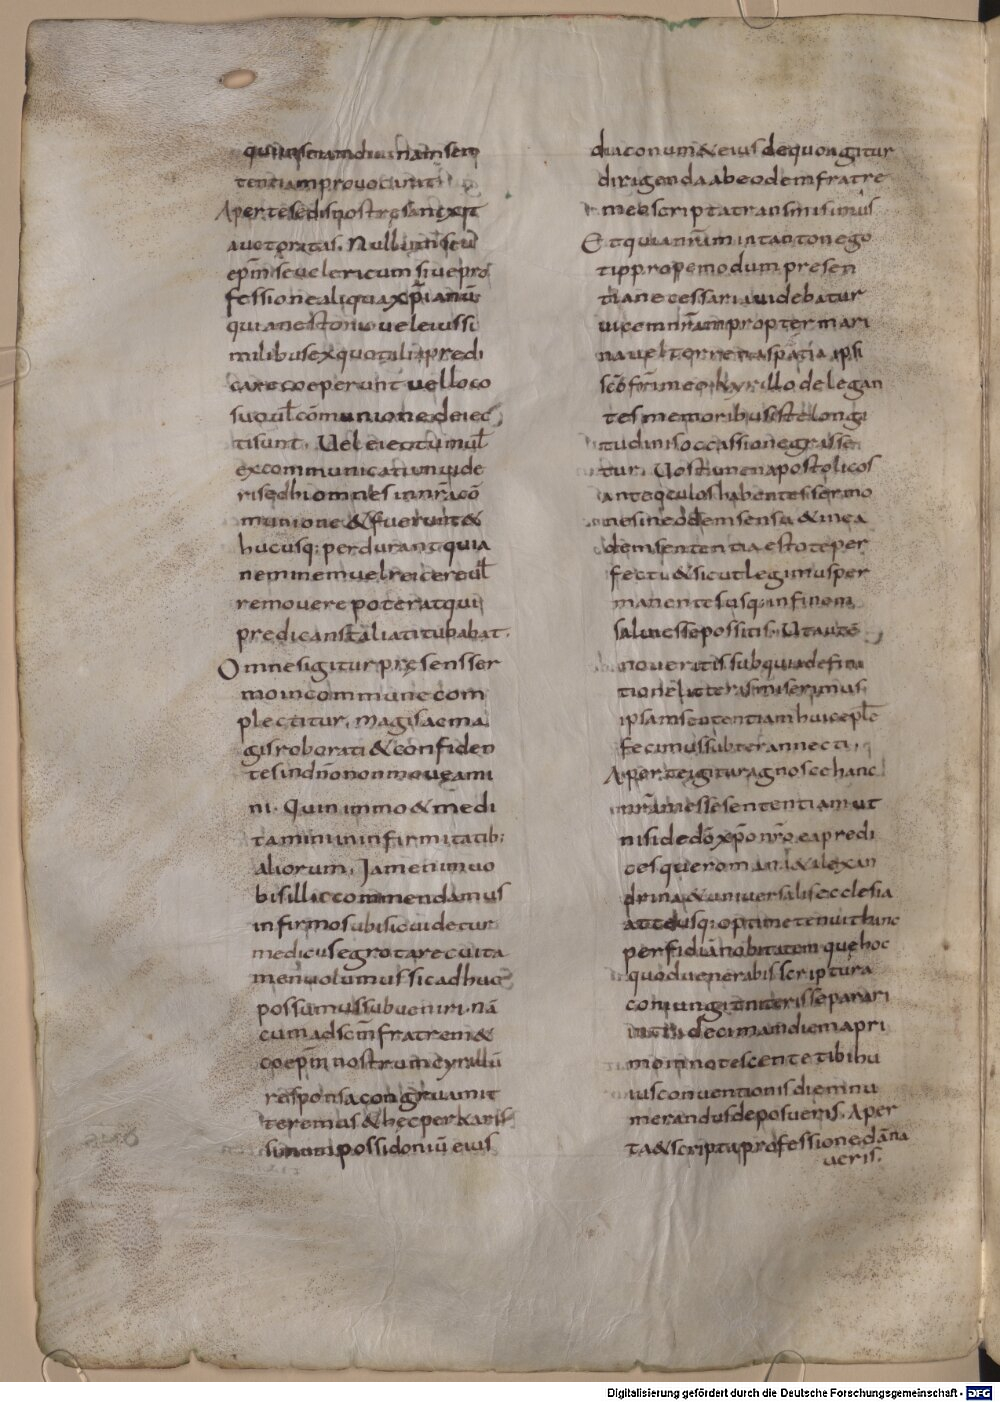 tentiam provocavit
Aperte sedis nostre sanexit
auctoritas. Nullum seu
ep̄m seu clericum siue pro
fessione aliqua xp̄ianū
qui a nestorio uel eius si
milibus ex quo talia predi
care coeperunt uel loco
suo ul̄ cōmunione deiec
ti sunt. Uel eiectum ul̄
excommunicatum uide
ri sed hi omnes in nr̄a cō
munione & fuerunt &
hucusq; perdurant quia
neminem uel reicere ul̄
remouere poterat qui
predicans talia titubabat.
Omnes igitur presens ser
mo in commune com
plectitur. magis ac ma
gis roborati & confiden
tes in dn̄o non moueami
ni. Quin immo & medi
tamini in infirmitatib;
aliorum. Jam enim uo
bis illic commendamus
infirmos ubi sic uidetur
medicus egrotare cui ta
men uolumus si adhuc
possumus subueniri. nā
cum ad scm̄ fratrem &
coep̄m nostrum cyrillū
responsa congrua mit
teremus & hęc per karis
simum possidoniū eius
diaconum & eius de quo agitur
dirigenda ab eodem fratre
meo scripta transmisimus
Et quia nr̄am in tanto nego
tio propemodum presen
tia necessaria uidebatur
uicem nr̄am propter mari
na uel terrena spatia ipsi
scō fr̄i meo kyrillo delegan
tes memoribus iste longi
tudinis occassione grasse
tur. Uos tamen apostolicos
ante oculos habentes sermo
nes in eodem sensu & in ea
dem sententia estote per
fecti & sicut legimus per
manentes usq; in finem
salui esse possitis. Ut autē
noueritis sub qua defini
tione litteras miserimus
ipsam sententiam huic epl̄e
fecimus subter annecti.
Aperte igitur agnosce hanc
nr̄am esse sententiam ut
nisi de dō xp̄o nr̄o ea predi
ces que romana & alexan
drina & uniuersalis ecclesia
perfidiā nobitatem quę hoc
quod uenerabis scriptura
coniungit niteris separari
intra decimam diem a pri
mo innotescente tibi hu
ius conuentionis die nu
merandus deposueris. Aper
ta & scripta professione dāna
ueris.